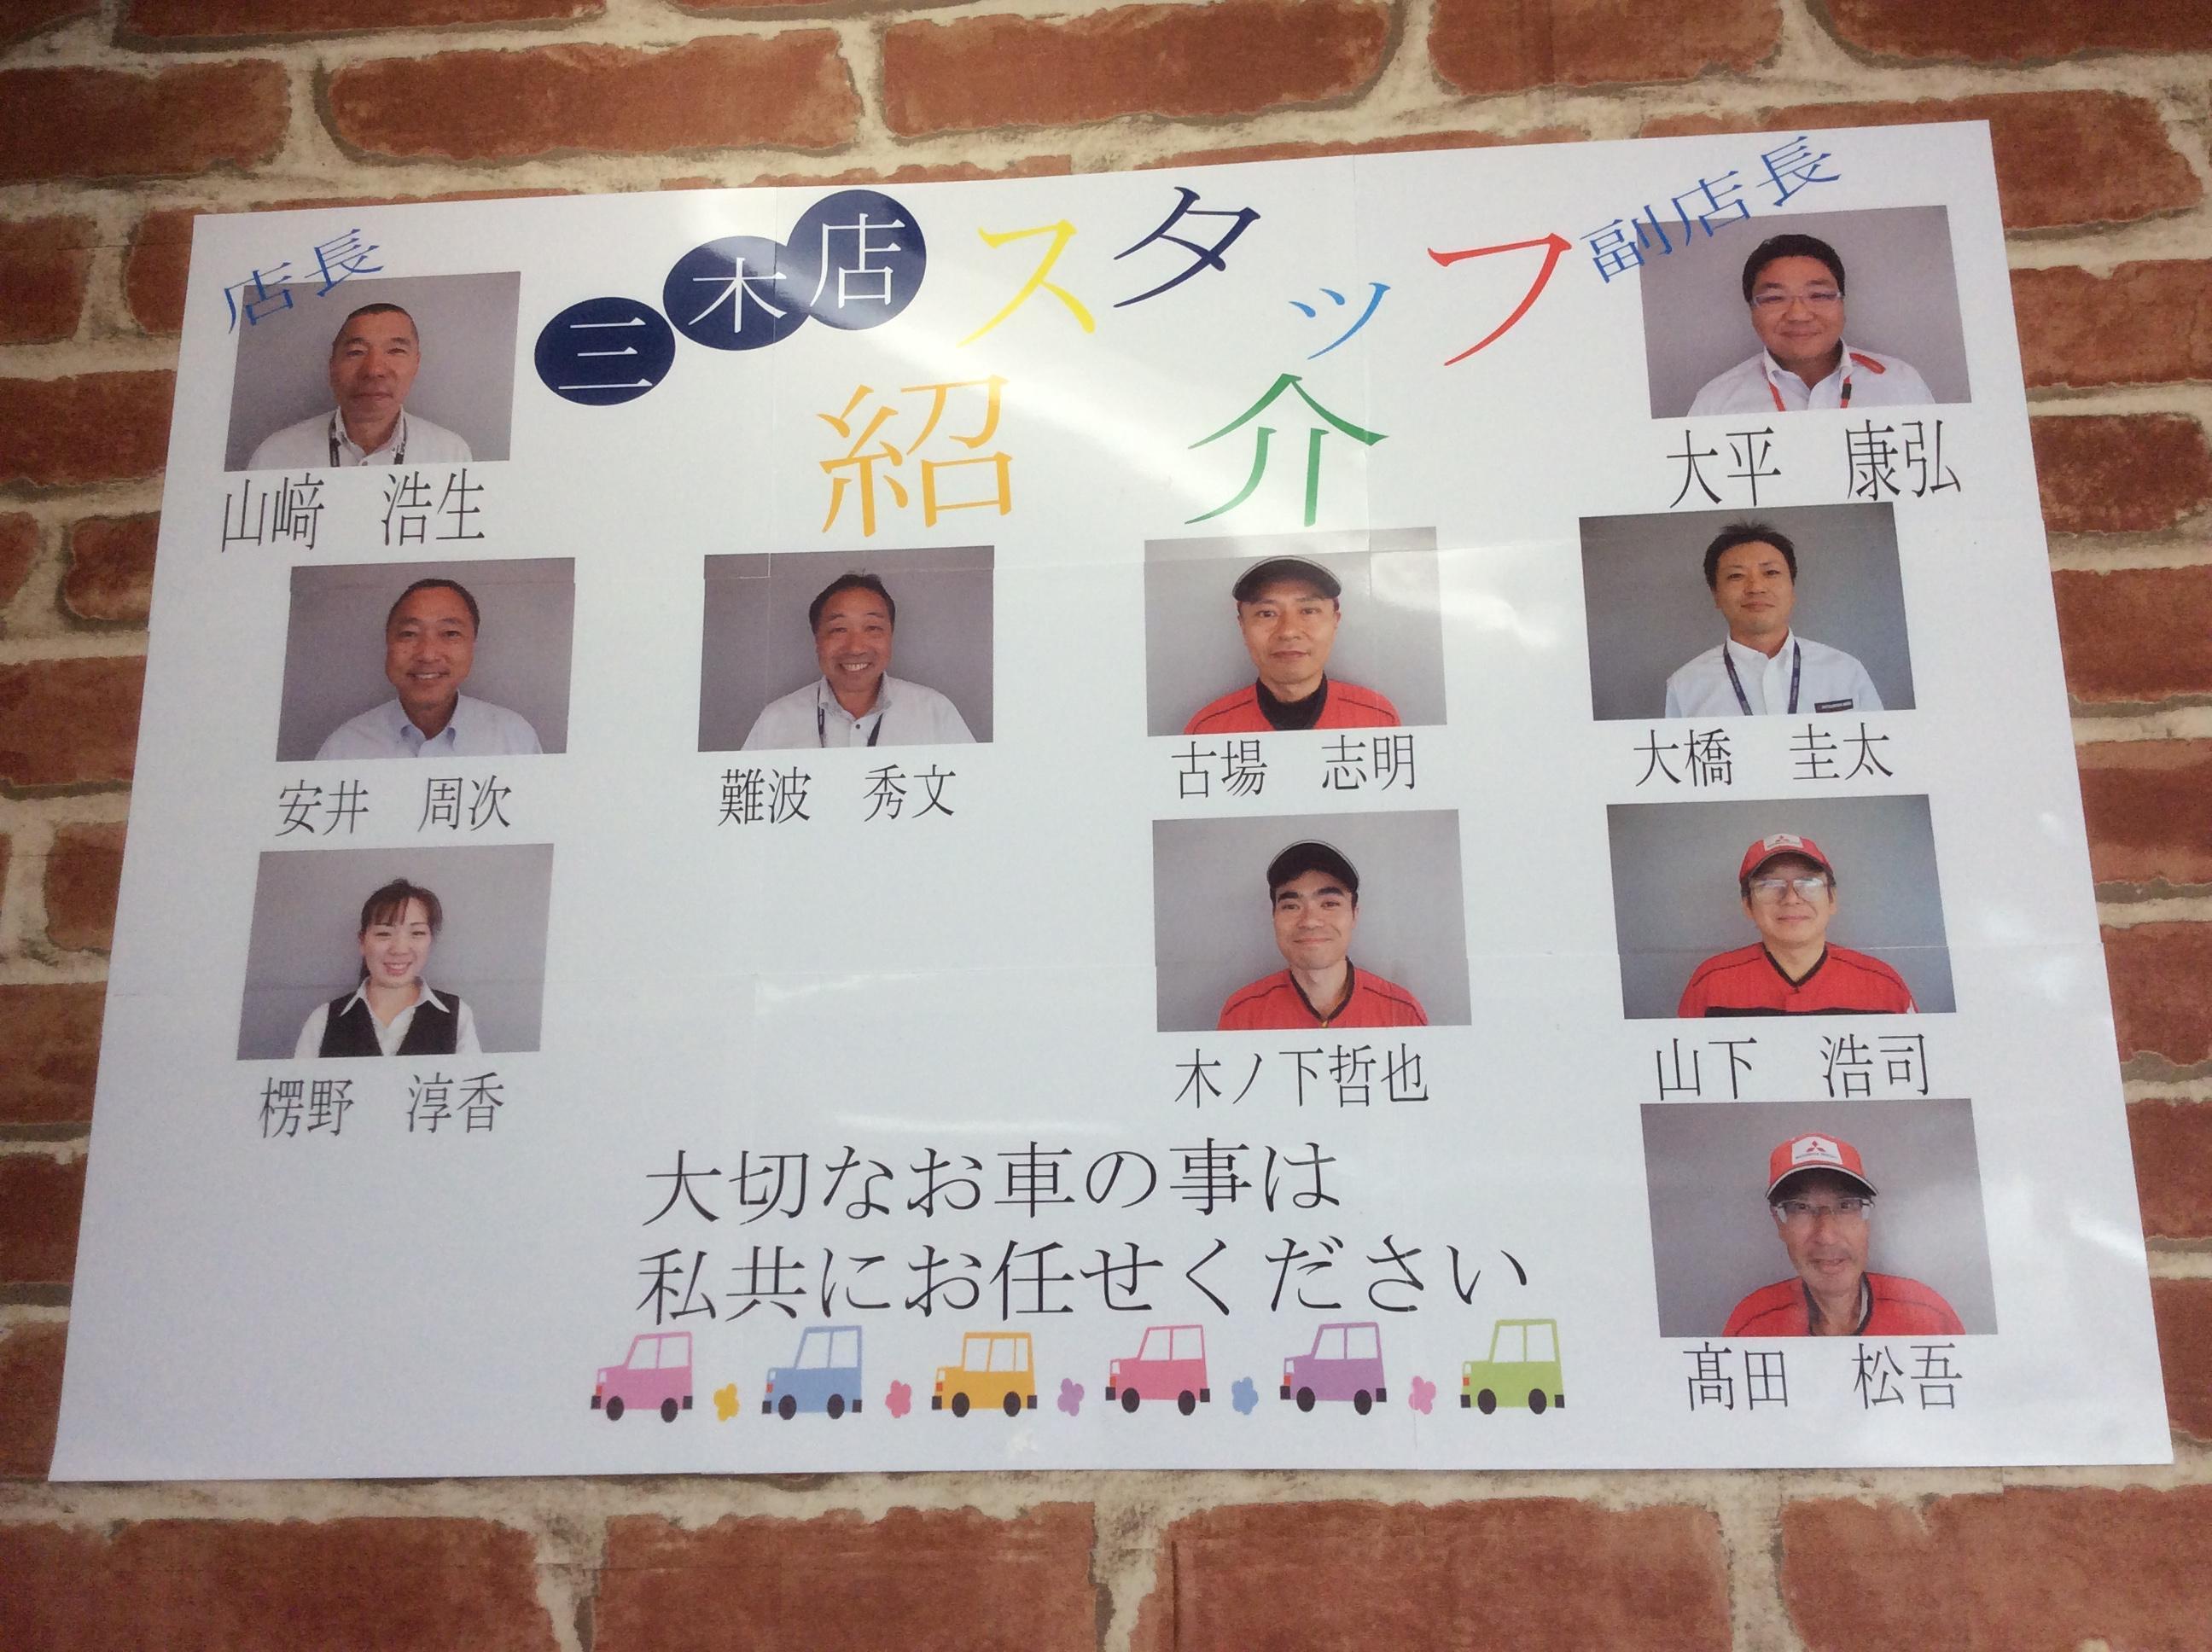 三木店スタッフ
紹介
店長
山﨑　浩生
副店長
大平　康弘
安井　周次
難波　秀文
古場　志明
大橋　圭太
楞野　淳香
木ノ下哲也
山下　浩司
髙田　松吾
大切なお車の事は
私共にお任せください